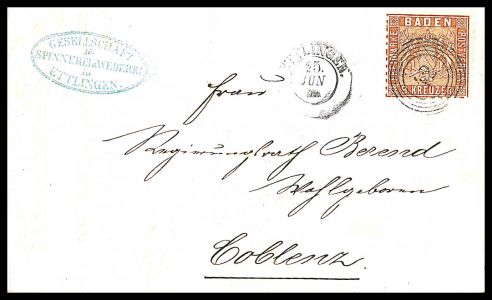 GESELLSCHAFT
für
SPINNEREI u. WEBEREI
in
ETTLINGEN.
ETTLINGEN.
25.
JUN
BADEN
FREIMARKE
KREUZER
Frau
Regierungsrath Berend
Wohlgeboren
Coblenz.